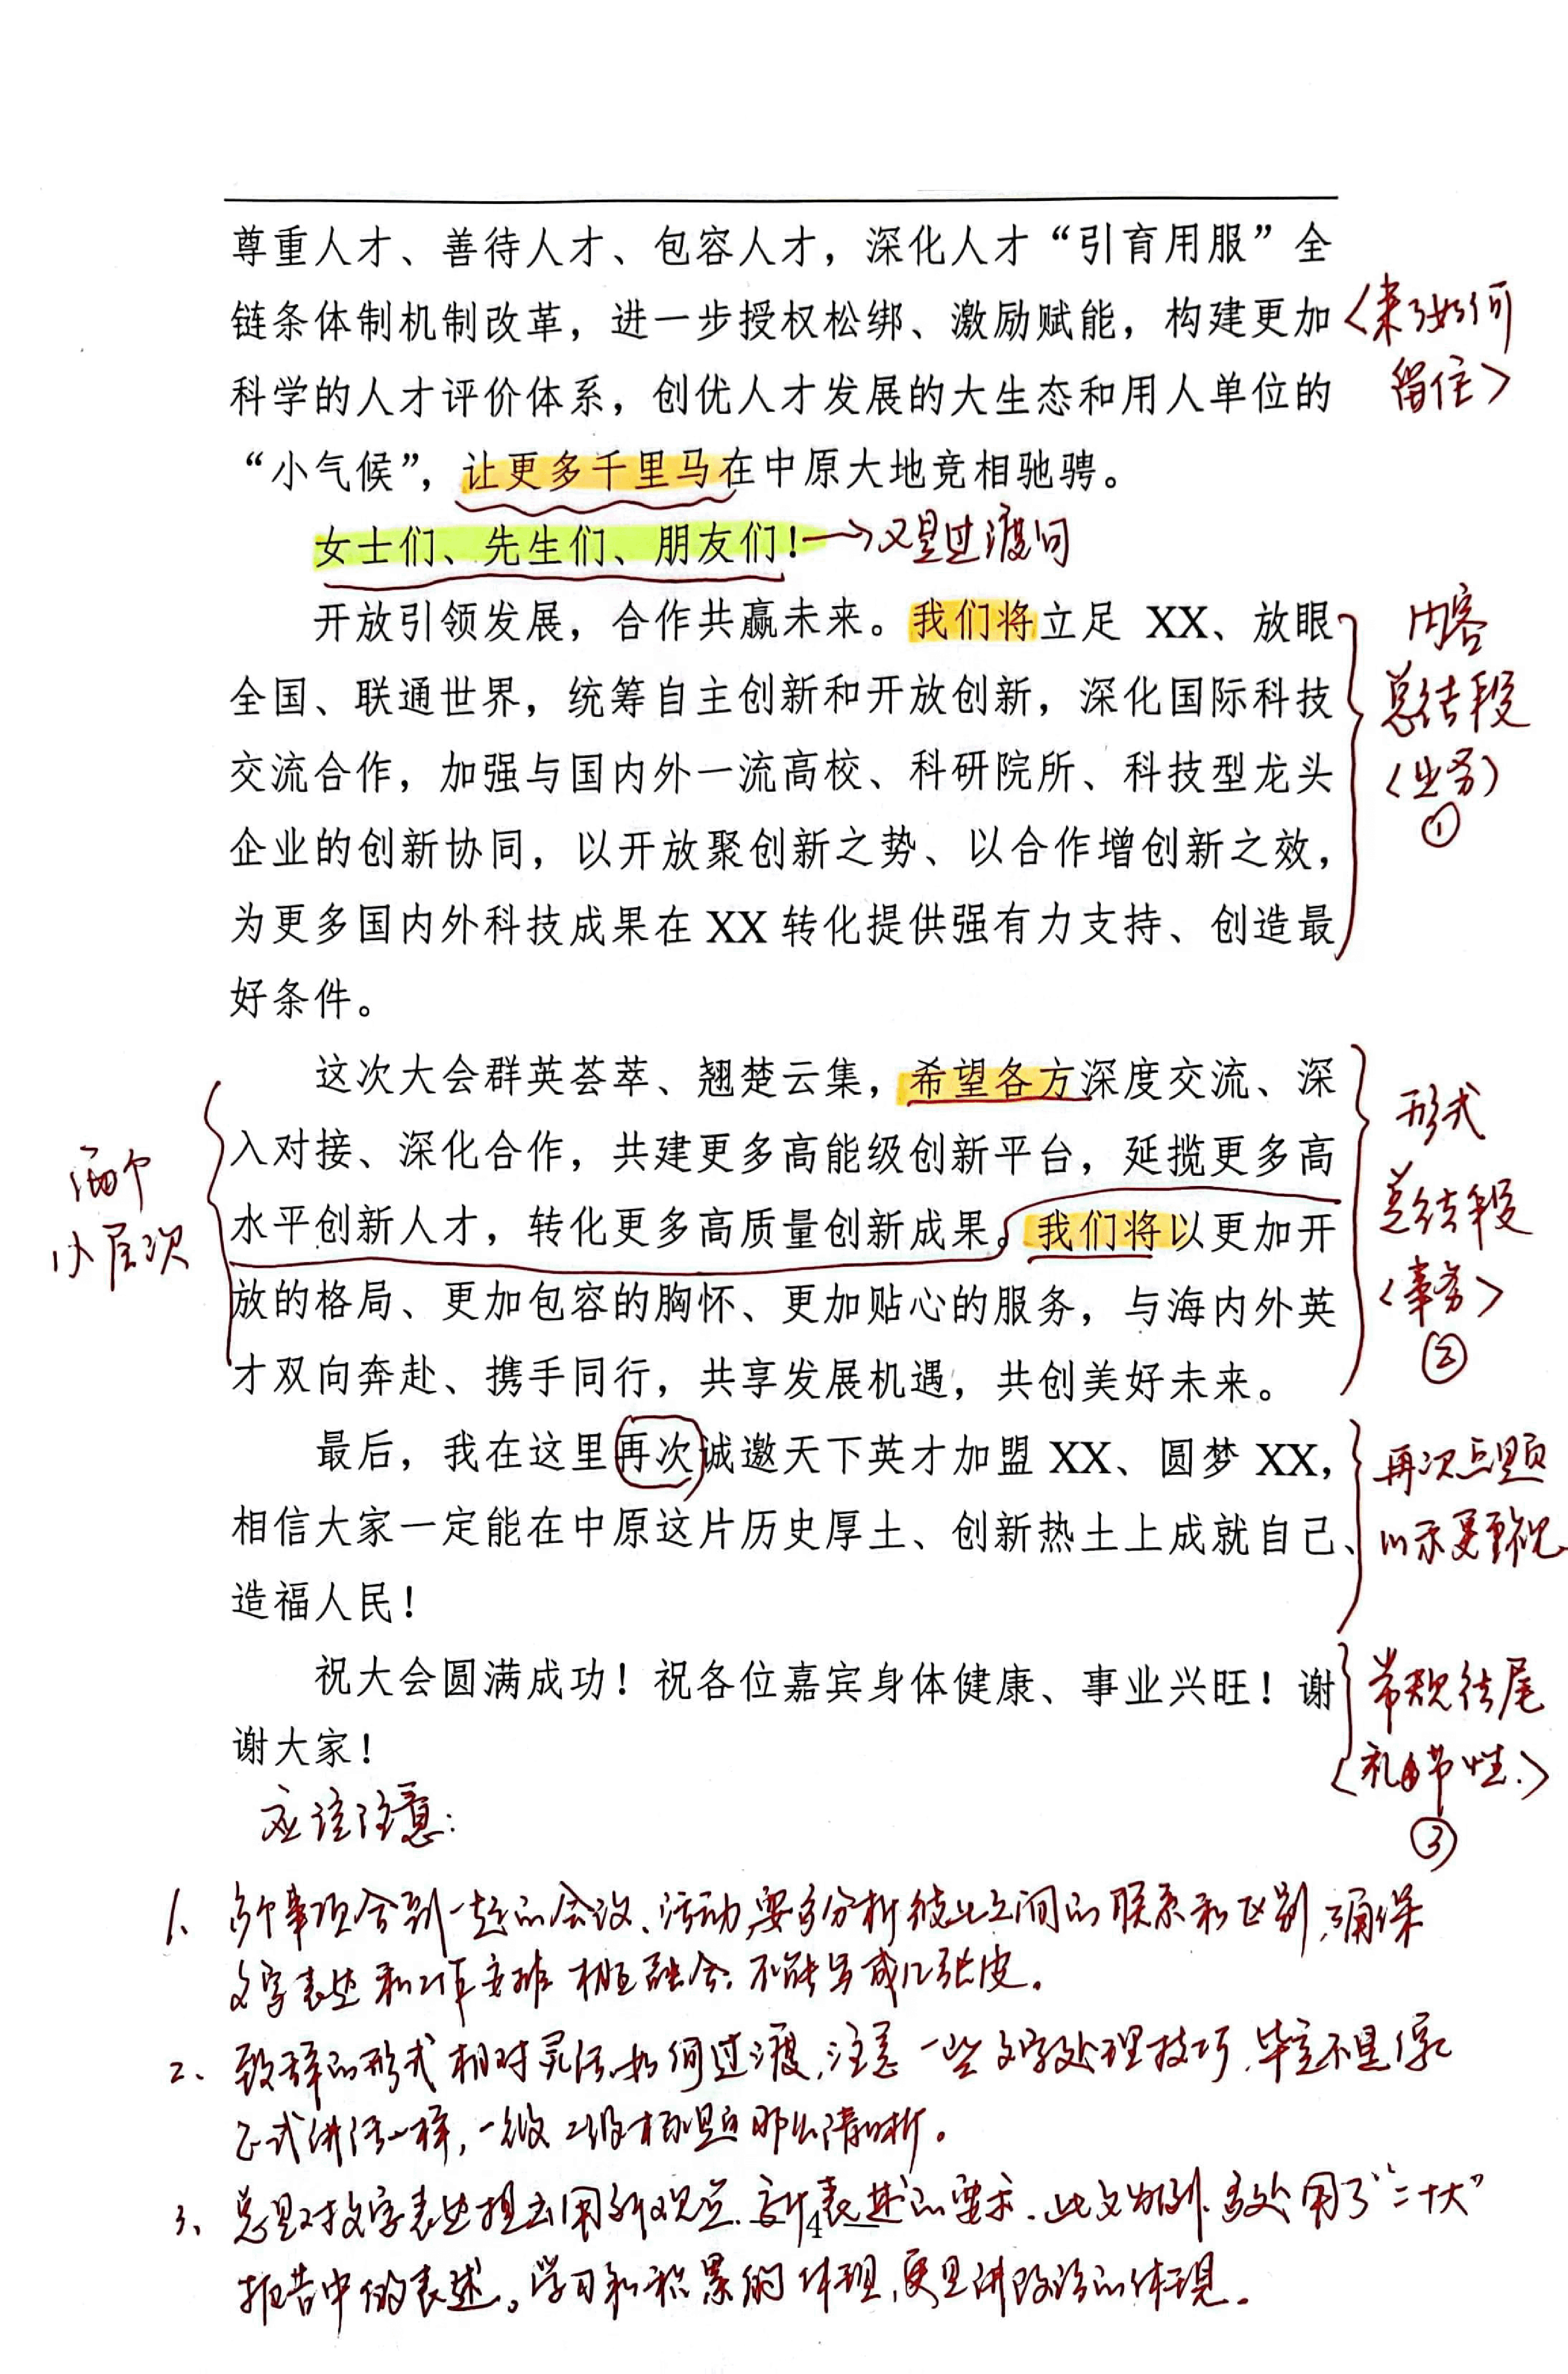 尊重人才、善待人才、包容人才，深化人才“引育用服”全
链条体制机制改革，进一步授权松绑、激励赋能，构建更加
科学的人才评价体系，创优人才发展的大生态和用人单位的
“小气候”，让更多千里马在中原大地竞相驰骋。
〈来了如何
留住〉
女士们、先生们、朋友们！
→又是过渡句
开放引领发展，合作共赢未来。我们将立足 XX、放眼
全国、联通世界，统筹自主创新和开放创新，深化国际科技
交流合作，加强与国内外一流高校、科研院所、科技型龙头
企业的创新协同，以开放聚创新之势、以合作增创新之效，
为更多国内外科技成果在 XX 转化提供强有力支持、创造最
好条件。
内容
总结段
〈业务〉
①
这次大会群英荟萃、翘楚云集，希望各方深度交流、深
入对接、深化合作，共建更多高能级创新平台，延揽更多高
水平创新人才，转化更多高质量创新成果。我们将以更加开
放的格局、更加包容的胸怀、更加贴心的服务，与海内外英
才双向奔赴、携手同行，共享发展机遇，共创美好未来。
两个
小层次
形式
总结段
〈事务〉
②
最后，我在这里再次诚邀天下英才加盟 XX、圆梦 XX，
相信大家一定能在中原这片历史厚土、创新热土上成就自己、
造福人民！
再次点题
以示更重视
祝大会圆满成功！祝各位嘉宾身体健康、事业兴旺！谢
谢大家！
常规结尾
〈礼节性.〉
③
应该注意：
1、多个事项合到一起的会议、活动，要多分析彼此之间的联系和区别，确保
文字表达和工作安排相互融合，不能写成几张皮。
2、致辞的形式相对灵活，如何过渡，注意一些文字处理技巧，毕竟不是像
正式讲话一样，一级二级标题那么清晰。
3、总是对文字表达提出用新观点、新表述的要求。此文为例，多处用了“二十大”
报告中的表述。学习和积累的体现，更是讲政治的体现。
4